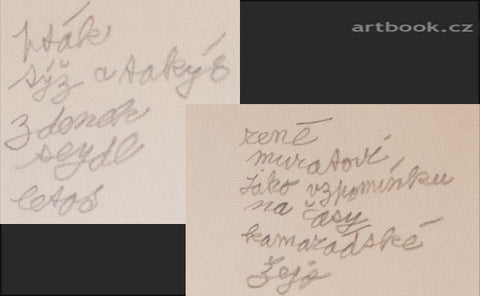 artbook.cz
pták
týž a takýs
zdenek
seydl
letos
rené
muratovi
jako vzpomínku
na časy
kamarádské